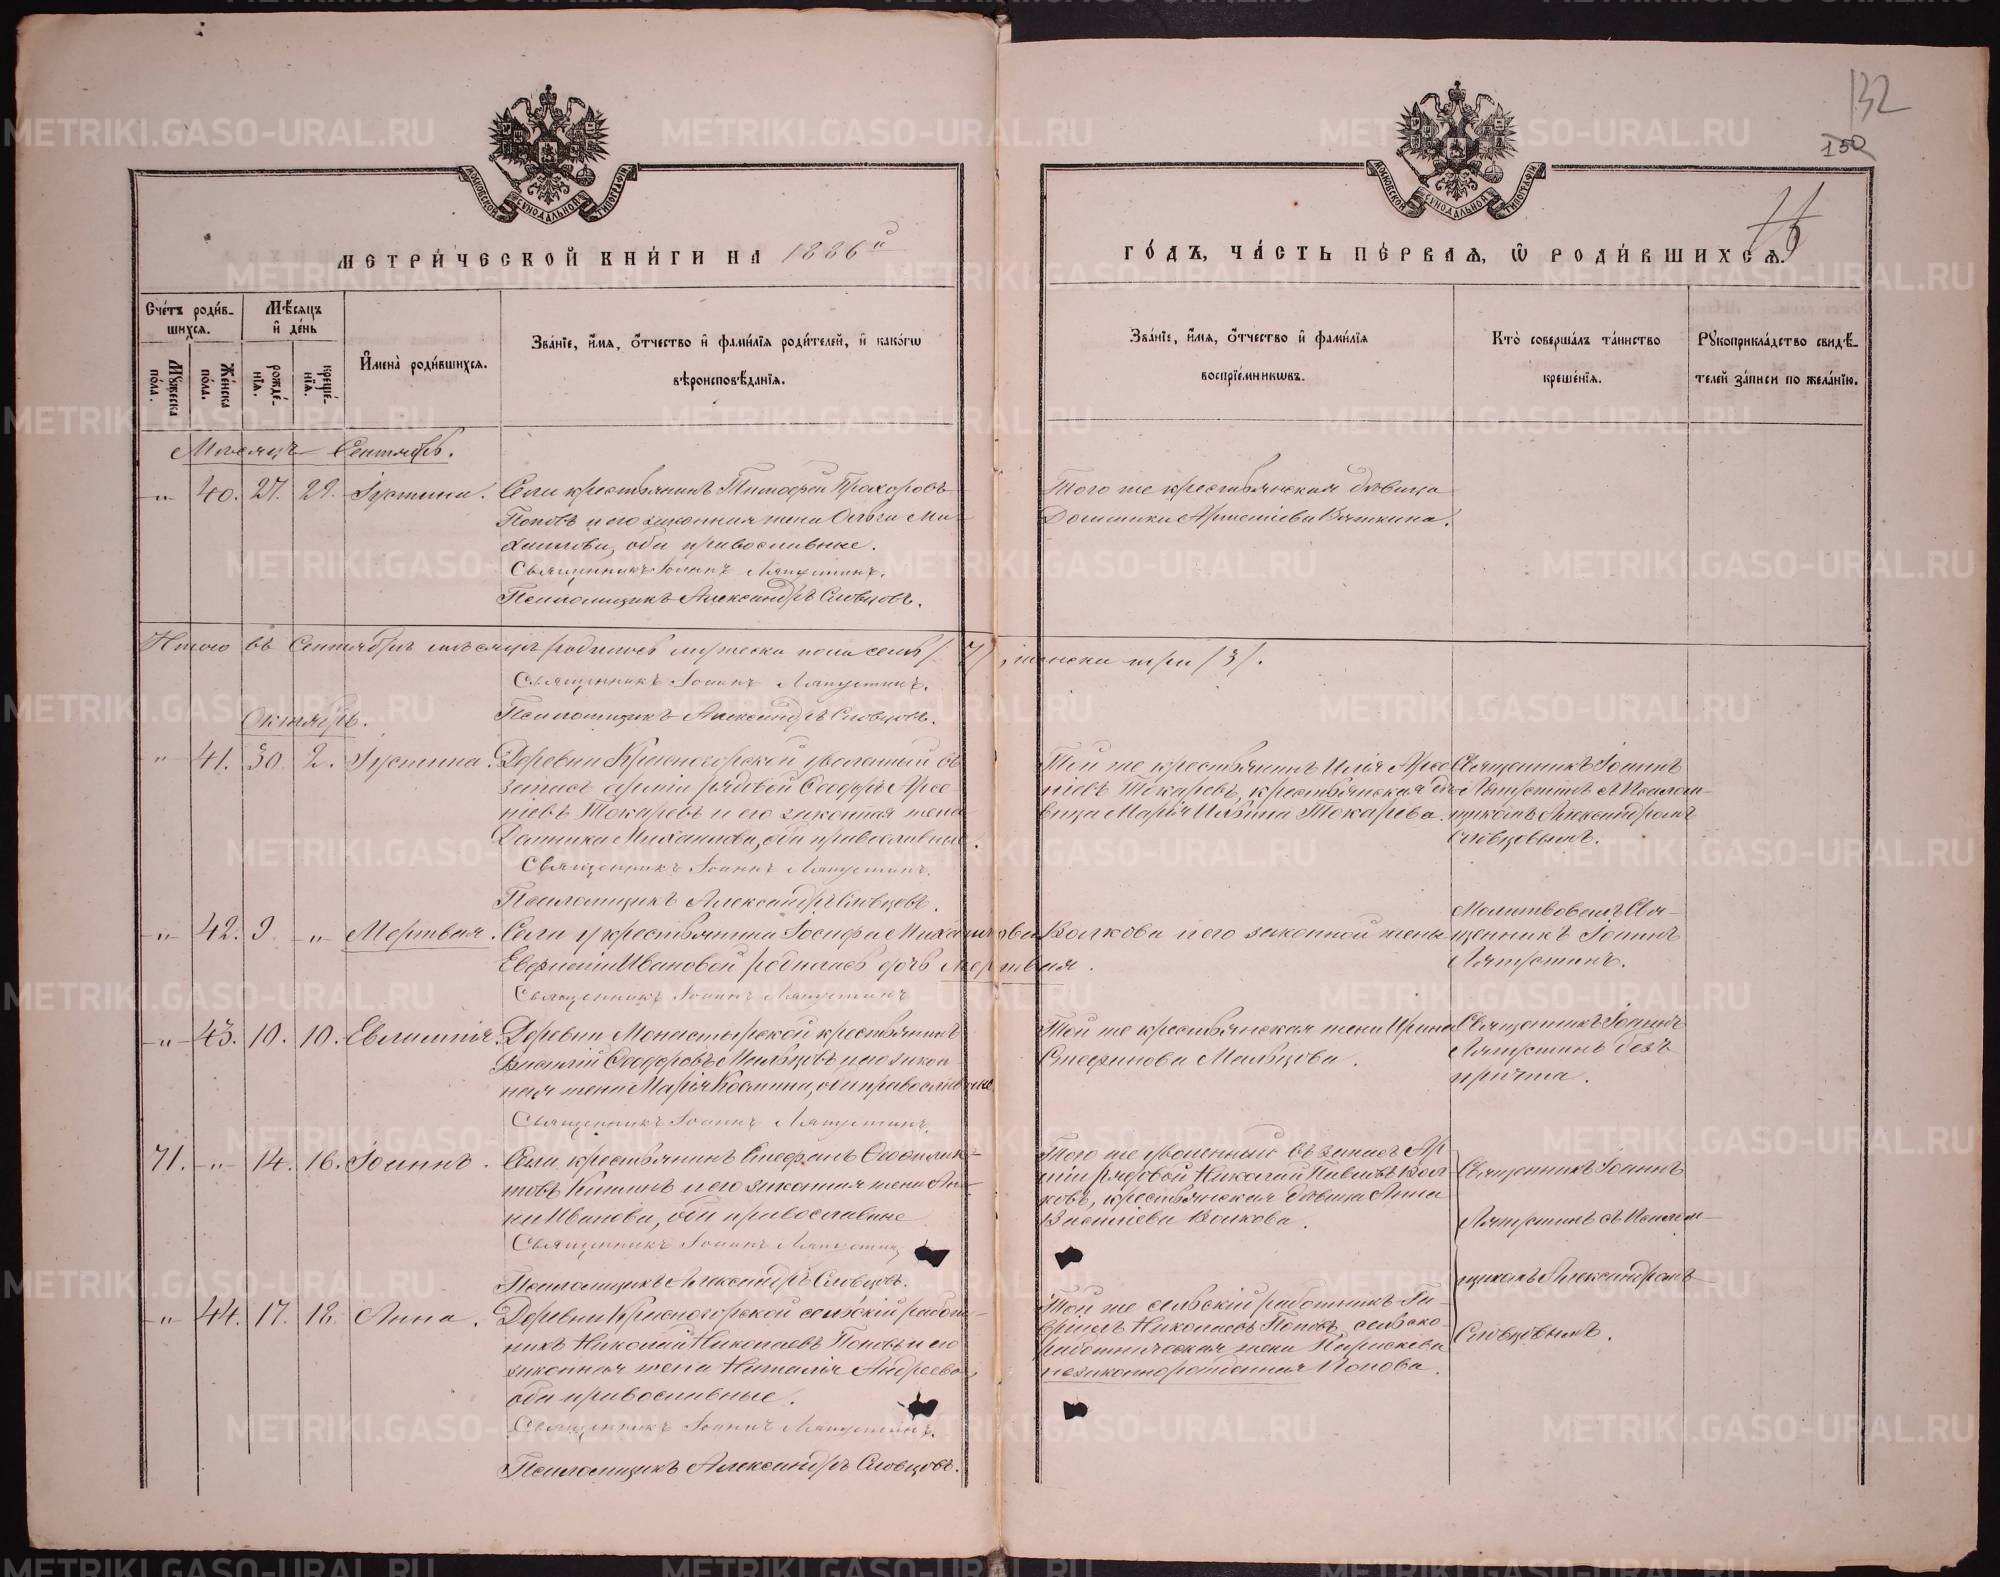 132
150
МОСКОВСКОЙ СѴНОДАЛЬНОЙ ТИПОГРАФІИ
МОСКОВСКОЙ СѴНОДАЛЬНОЙ ТИПОГРАФІИ
МЕТРИ́ЧЕСКОЙ КНИ́ГИ НА 1886й
ГО́ДЪ, ЧА́СТЬ ПЕ́РВАѦ, Ѽ РОДИ́ВШИХСѦ.
Сче́тъ роди́в-
шихсѧ.
Мꙋ́жеска по́ла.
Же́нска по́ла.
Мѣ́сѧцъ
и҆ де́нь
рожде́-
нїѧ.
креще́-
нїѧ.
И҆мена̀ роди́вшихсѧ.
Зва́нїе, и҆́мѧ, ѻ҆́тчество и҆ фами́лїѧ роди́телей, и҆ како́гѡ
вѣроисповѣ́данїѧ.
Зва́нїе, и҆́мѧ, ѻ҆́тчество и҆ фами́лїѧ
воспрїе́мникѡвъ.
Кто̀ соверша́лъ та́инство
креще́нїѧ.
Рꙋкоприкла́дство свидѣ́-
телей за́писи по жела́нїю.
Месяцъ Сентябрь.
„ 40. 27. 29. Іустина. Села крестьянинъ Тимофей Прохоровъ
Поповъ и его законная жена Ольга Ми-
хаилова, оба православные.
Священникъ Іоаннъ Ляпустинъ.
Псаломщикъ Александръ Словцовъ.
Того же крестьянская дѣвица
Домника Арсеніева Вяткина.
Итого въ Сентябрѣ мѣсяцѣ родилось мужеска пола семь /7/, женска три /3/.
Священникъ Іоаннъ Ляпустинъ.
Псаломщикъ Александръ Словцовъ.
Октябрь.
„ 41. 30. 2. Іустина. Деревни Красногорской уволенный въ
запасъ арміи рядовой Ѳеодоръ Арсе-
ніевъ Токаревъ и его законная жена
Домника Михаилова, оба православные.
Священникъ Іоаннъ Ляпустинъ.
Псаломщикъ Александръ Словцовъ.
Той же крестьянинъ Илія Арсе-
ніевъ Токаревъ, крестьянская дѣ-
вица Марія Ильина Токарева.
Священникъ Іоаннъ
Ляпустинъ съ Псалом-
щикомъ Александромъ
Словцовымъ.
„ 42. 9. „ Мертвая. Села у крестьянина Іосифа Михаилова Волкова и его законной жены
Евфиміи Ивановой родилась дочь мертвая.
Священникъ Іоаннъ Ляпустинъ
Молитвовалъ Свя-
щенникъ Іоаннъ
Ляпустинъ.
„ 43. 10. 10. Евлампія. Деревни Монастырской крестьянинъ
Василій Ѳеодоровъ Мальцовъ и его закон
ная жена Марія Козмина, оба православные
Священникъ Іоаннъ Ляпустинъ.
Той же крестьянская жена Ирина
Стефанова Мальцова.
Священникъ Іоаннъ
Ляпустинъ безъ
причта.
71. „ 14. 16. Іоаннъ. Села крестьянинъ Стефанъ Ѳеофилак-
товъ и его законная жена Ан-
на Иванова, оба православные
Священникъ Іоаннъ Ляпустинъ
Псаломщикъ Александръ Словцовъ.
Того же уволенный въ запасъ Ар
міи рядовой Николай Павловъ Вол-
ковъ, крестьянская дѣвица Анна
Василіева Волкова.
Священникъ Іоаннъ
Ляпустинъ съ Псалом-
щикомъ Александромъ
Словцовымъ.
„ 44. 17. 18. Анна. Деревни Красногорской сельскій работ-
никъ Николай Николаевъ Поповъ и его
законная жена Наталія Андреева,
оба православные.
Священникъ Іоаннъ Ляпустинъ.
Псаломщикъ Александръ Словцовъ.
Той же сельскій работникъ Га-
вріилъ Николаевъ Поповъ, сельско-
работническая жена Параскева
незаконнорожденная Попова.
METRIKI.GASO-URAL.RU